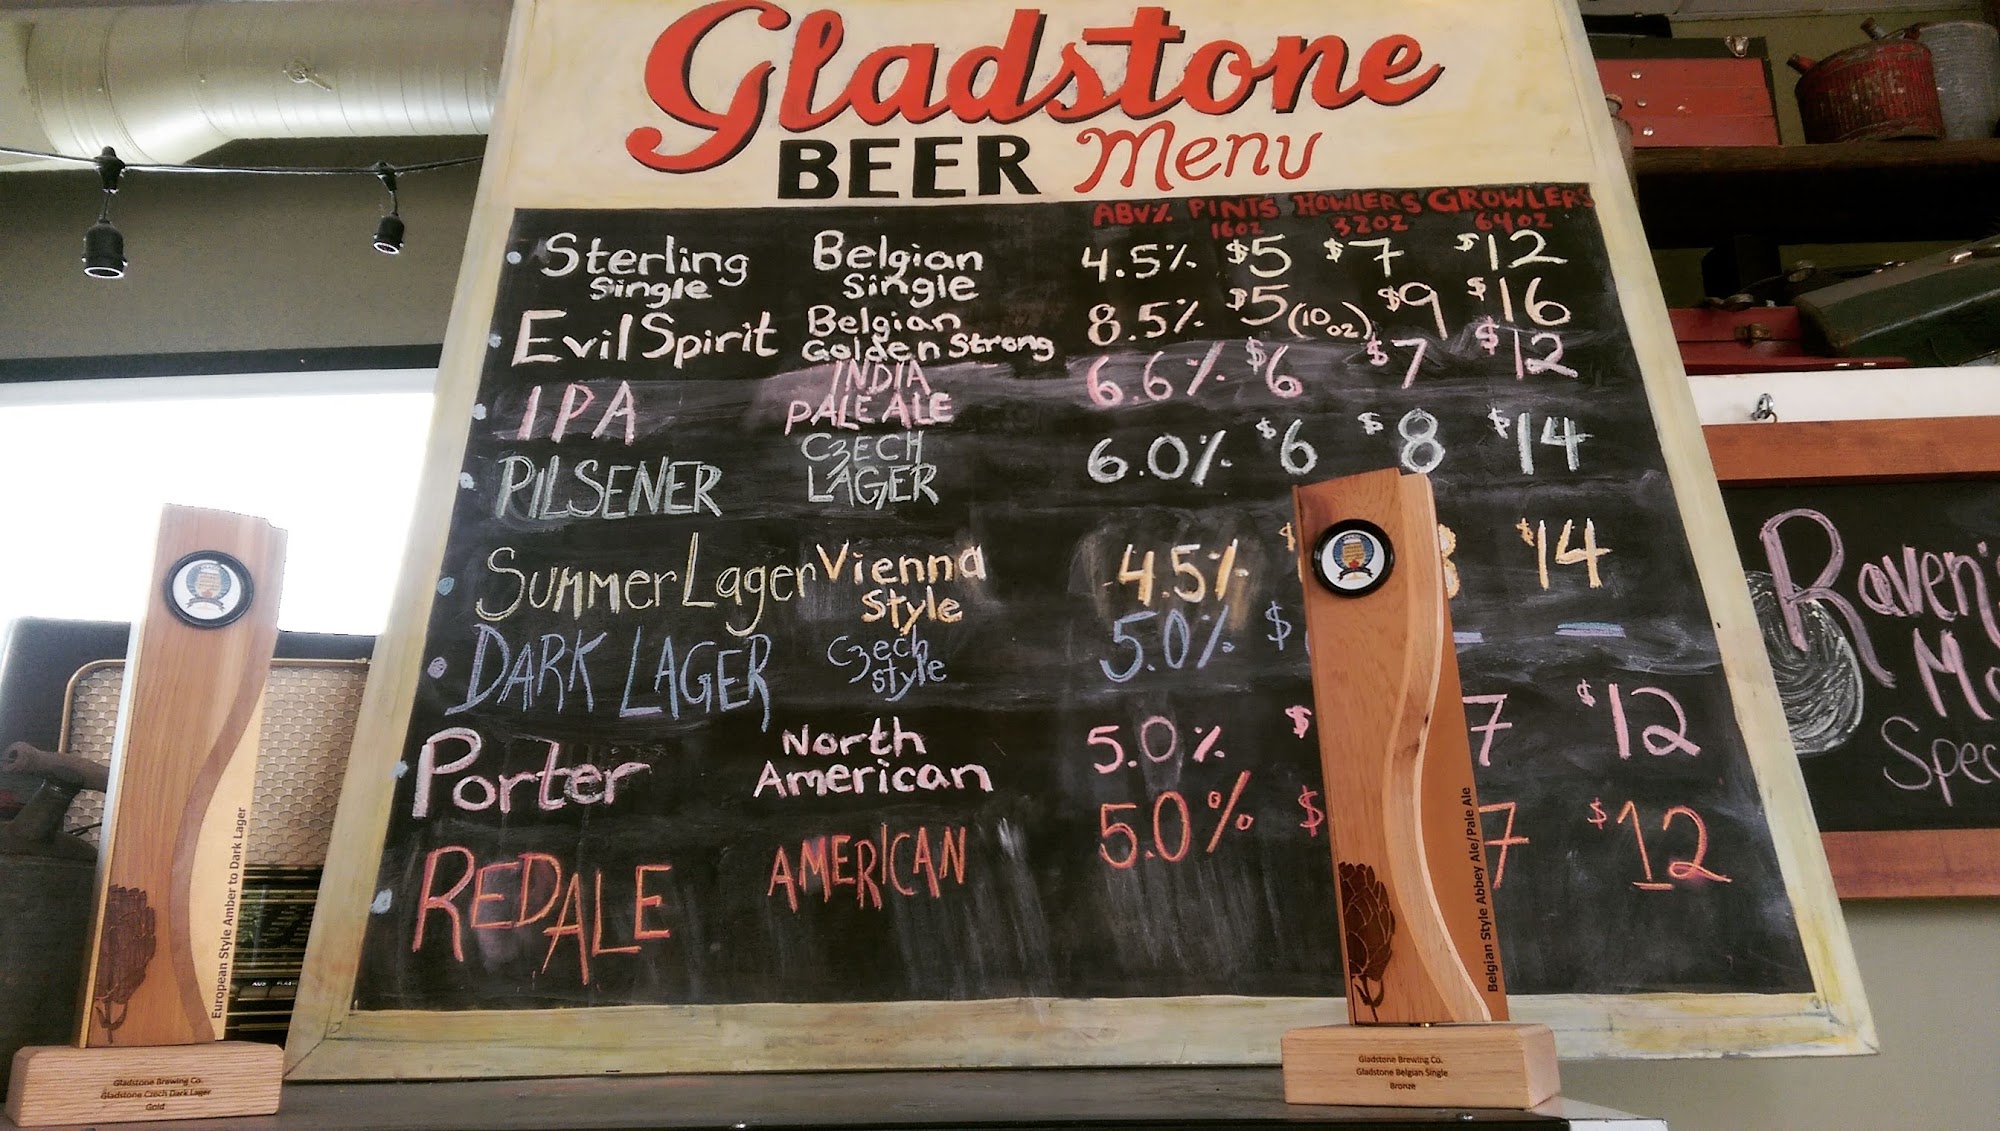 Gladstone
BEER Menu
ABV% PINTS HOWLERS GROWLERS
16oz 32oz 64oz
Sterling Single Belgian Single 4.5% $5 $7 $12
Evil Spirit Belgian Golden Strong 8.5% $5 (10oz) $9 $16
IPA INDIA PALE ALE 6.6% $6 $7 $12
PILSENER CZECH LAGER 6.0% $6 $8 $14
Summer Lager Vienna Style 4.5% $14
DARK LAGER Czech style 5.0% $ — —
Porter North American 5.0% $ 7 $12
RED ALE AMERICAN 5.0% $ 7 $12
Raven's
Spec
European Style Amber to Dark Lager
Gladstone Brewing Co.
Gladstone Czech Dark Lager
Gold
Belgian Style Abbey Ale/Pale Ale
Gladstone Brewing Co.
Gladstone Belgian Single
Bronze